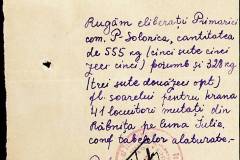 Rugăm eliberați Primăriei
com. P-Solonica, cantitatea
de 555 kg (cinci sute cinci
zeci cinci) porumb și 328 kg
(trei sute douăzeci opt)
fl. soarelui pentru hrana
41 locuitori mutați din
Râbnița pe luna Iulie,
conf tabelelor alăturate.-